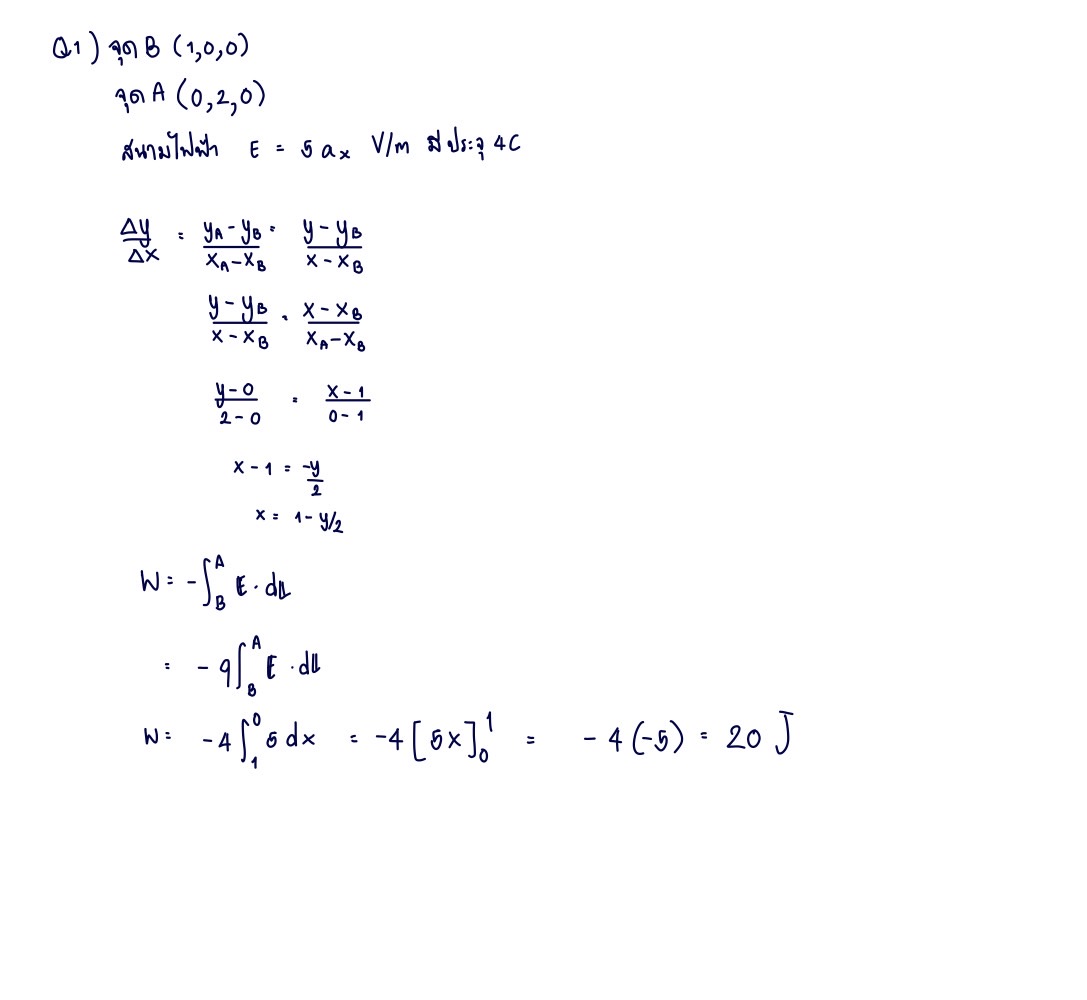 Q1) จุด B (1,0,0)
จุด A (0,2,0)
สนามไฟฟ้า E = 5 aₓ V/m มีประจุ 4C
Δy/Δx = (y_A - y_B)/(x_A - x_B) = (y - y_B)/(x - x_B)
(y - y_B)/(x - x_B) = (x - x_B)/(x_A - x_B)
(y - 0)/(2 - 0) = (x - 1)/(0 - 1)
x - 1 = -y/2
x = 1 - y/2
W = -∫_B^A E · dL
= -q∫_B^A E · dL
W = -4∫_1^0 5 dx = -4[5x]_0^1 = -4(-5) = 20 J